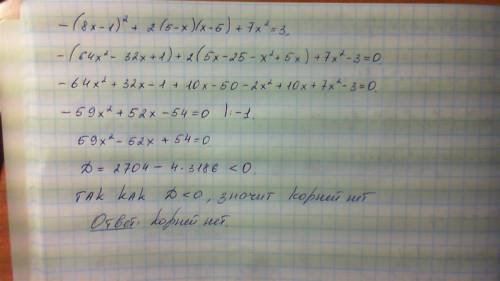 -(8x-1)² + 2(5-x)(x-5) + 7x² = 3.
-(64x² - 32x + 1) + 2(5x - 25 - x² + 5x) + 7x² - 3 = 0.
-64x² + 32x - 1 + 10x - 50 - 2x² + 10x + 7x² - 3 = 0.
-59x² + 52x - 54 = 0 |:-1.
59x² - 52x + 54 = 0
D = 2704 - 4·3186 < 0.
ТАК КАК D < 0, значит корней нет
Ответ: корней нет.